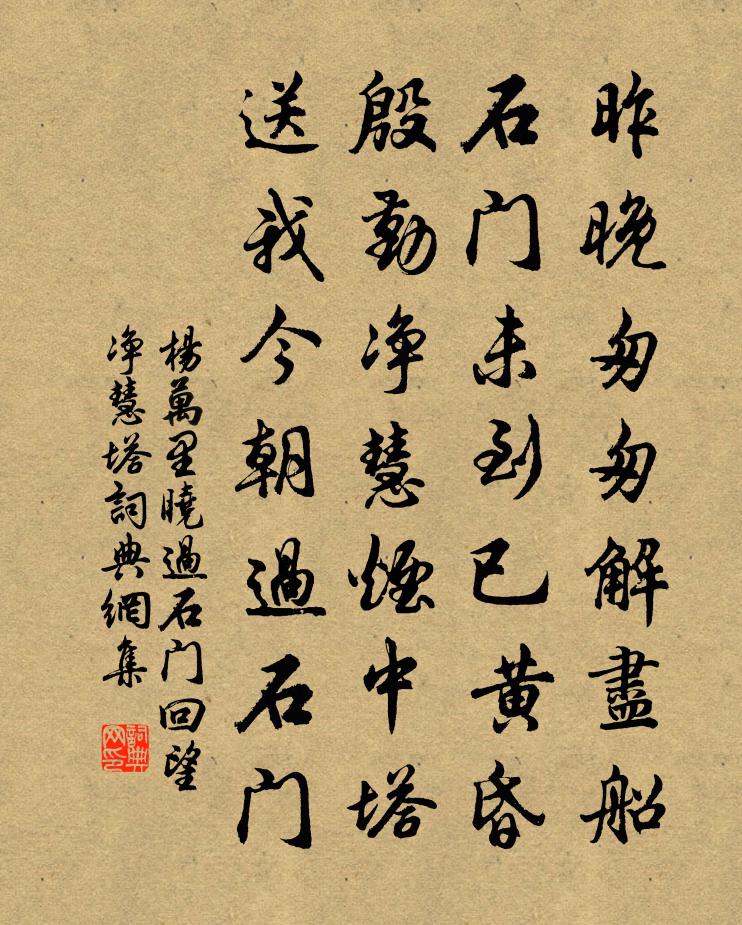 昨晚匆匆解盡船
石门未到已黄昏
殷勤净慧煙中塔
送我今朝過石门
楊萬里曉過石门回望
净慧塔詞典網集
詞典網印